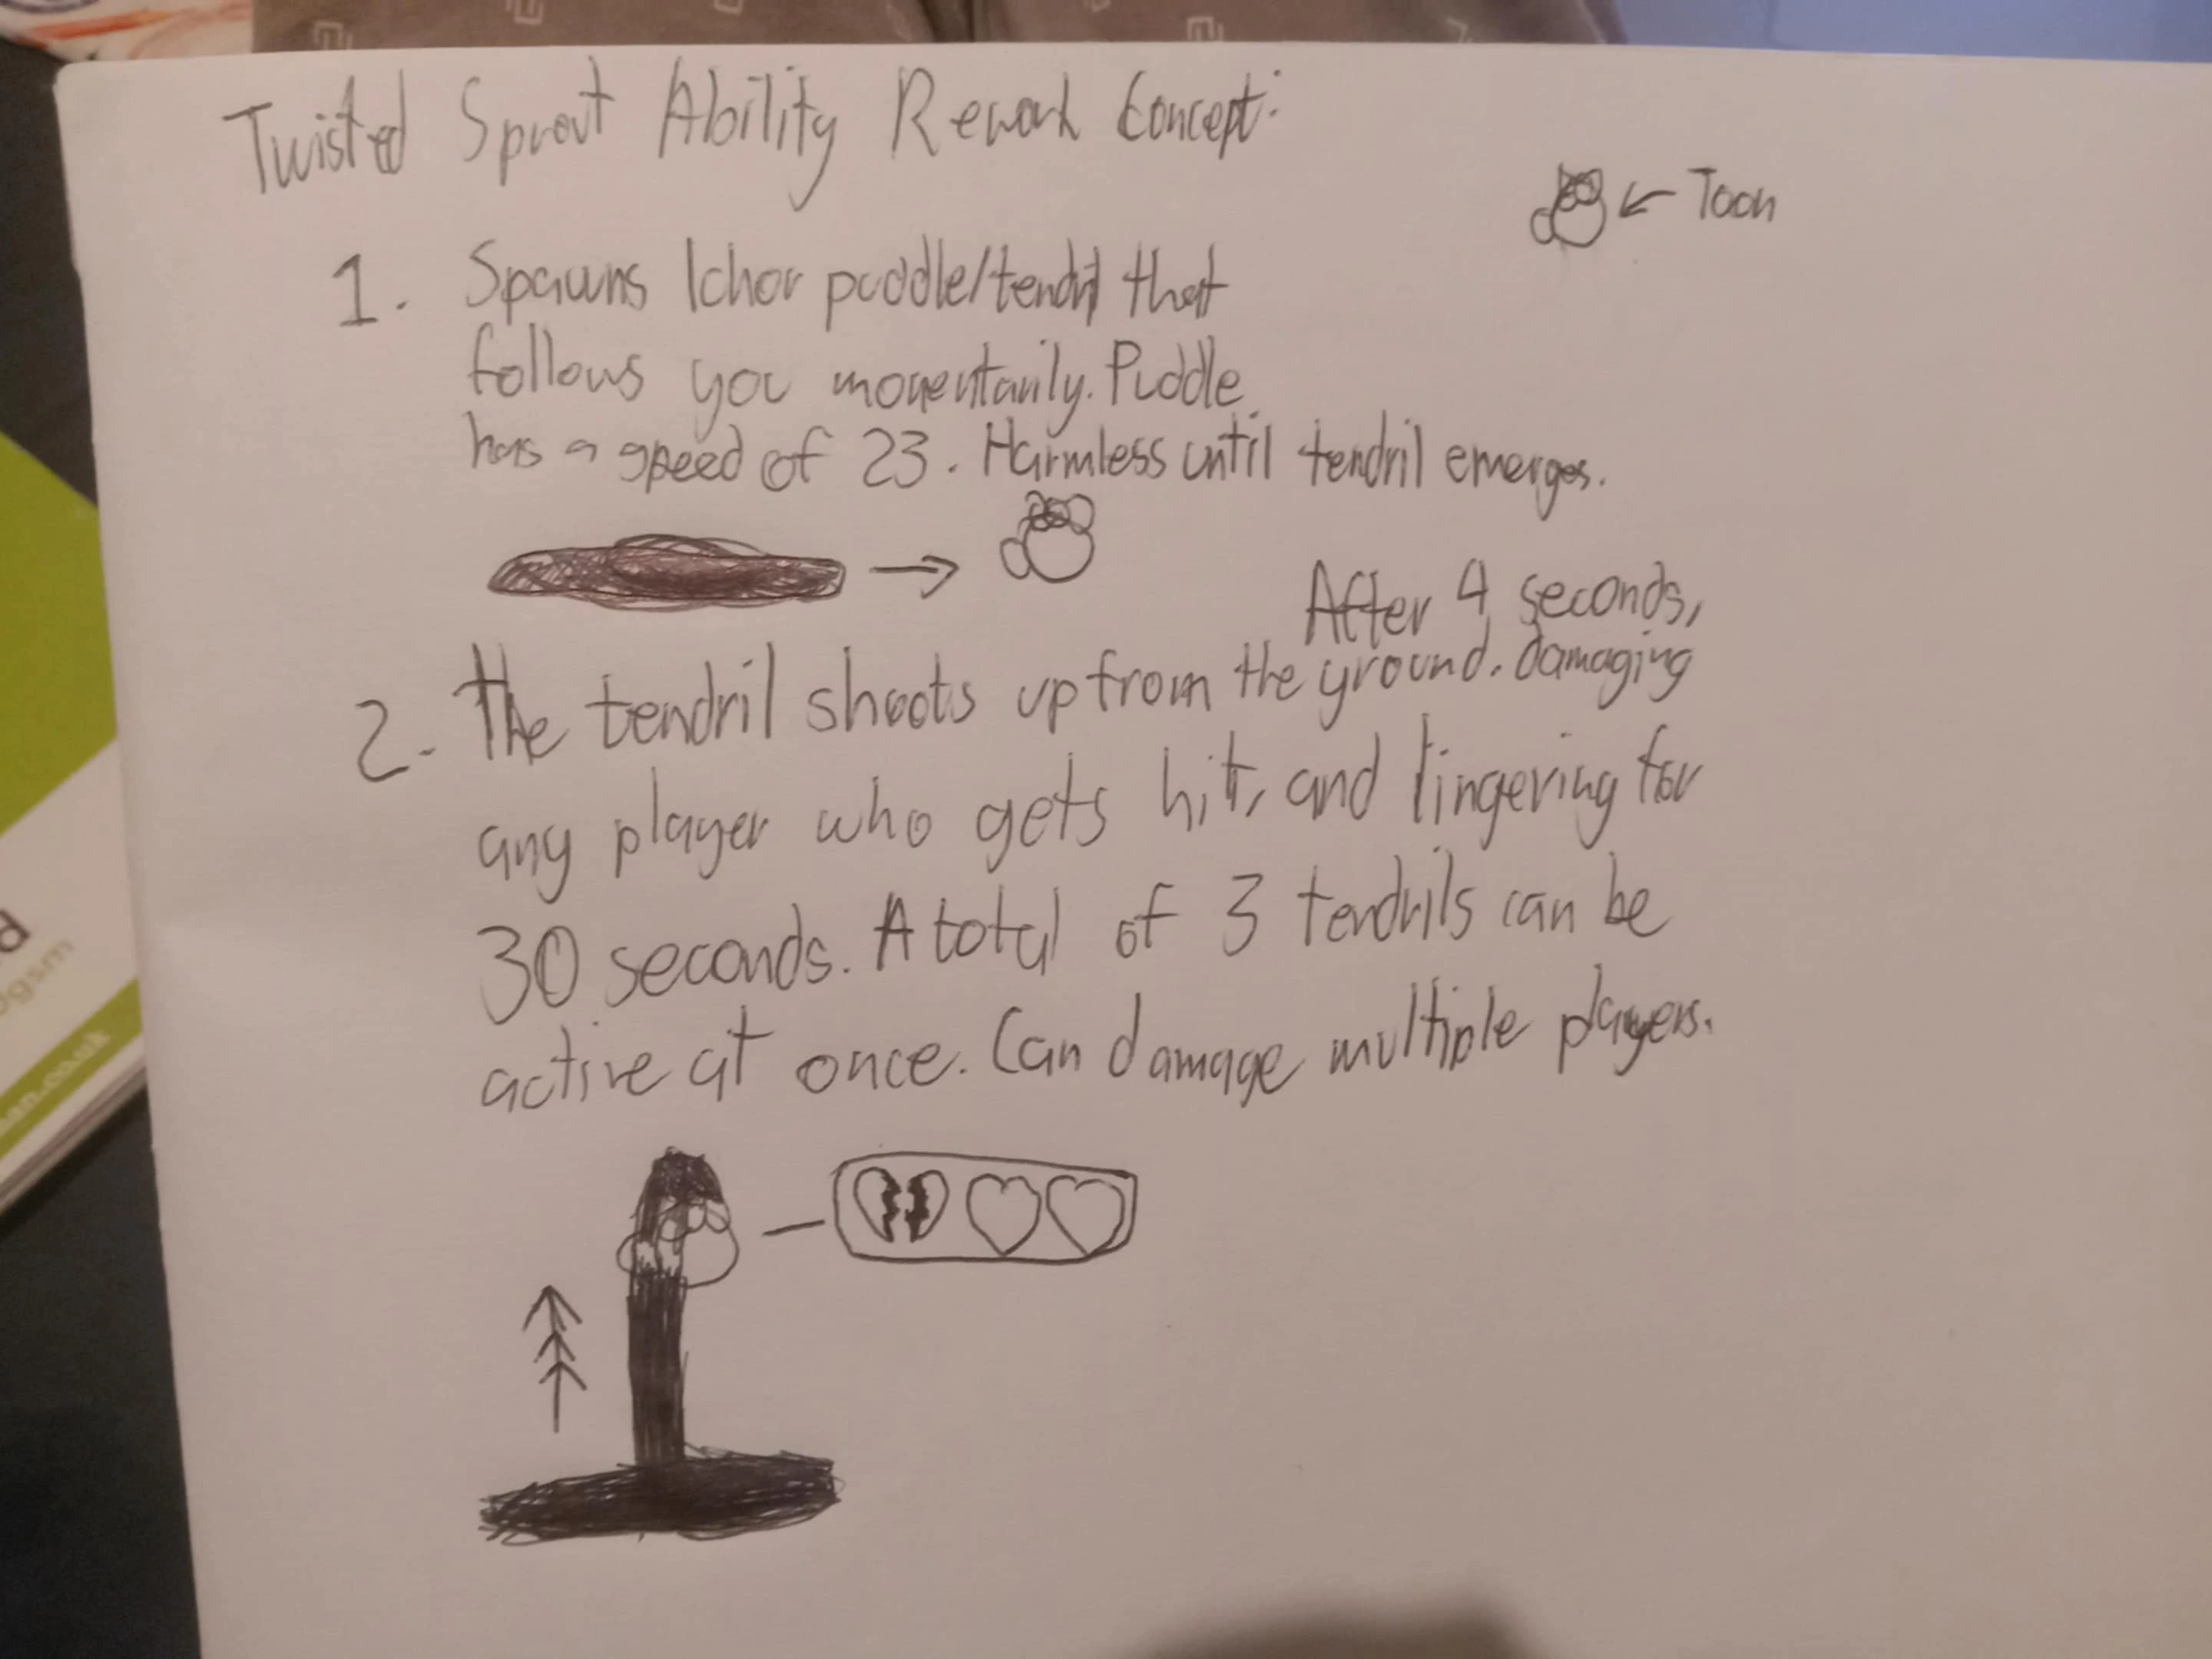 Twisted Sprout Ability Rework Concept:
← Toon
1. Spawns Ichor puddle/tendril that
follows you momentarily. Puddle
has a speed of 23. Harmless until tendril emerges.
After 4 seconds,
2. The tendril shoots up from the ground, damaging
any player who gets hit, and lingering for
30 seconds. A total of 3 tendrils can be
active at once. Can damage multiple players.
gsm
an.co.uk